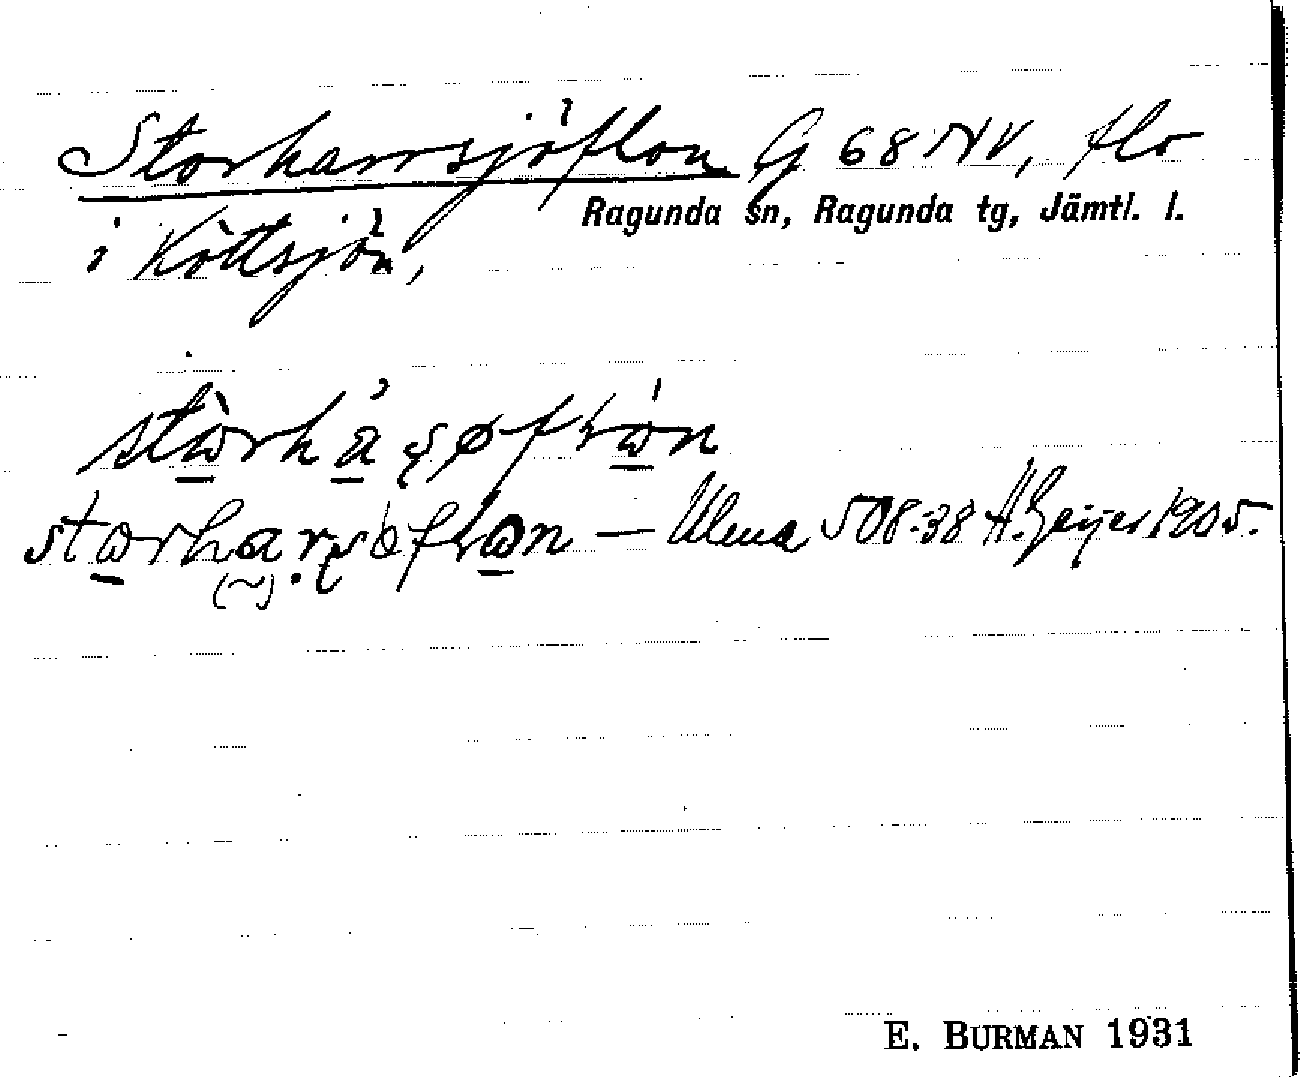 Storharrsjöflon G 68 NV, flo
Ragunda sn, Ragunda tg, Jämtl. l.
i Köttsjön,
Ulma 508:38 H. Geijer 1905.
E. BURMAN 1931